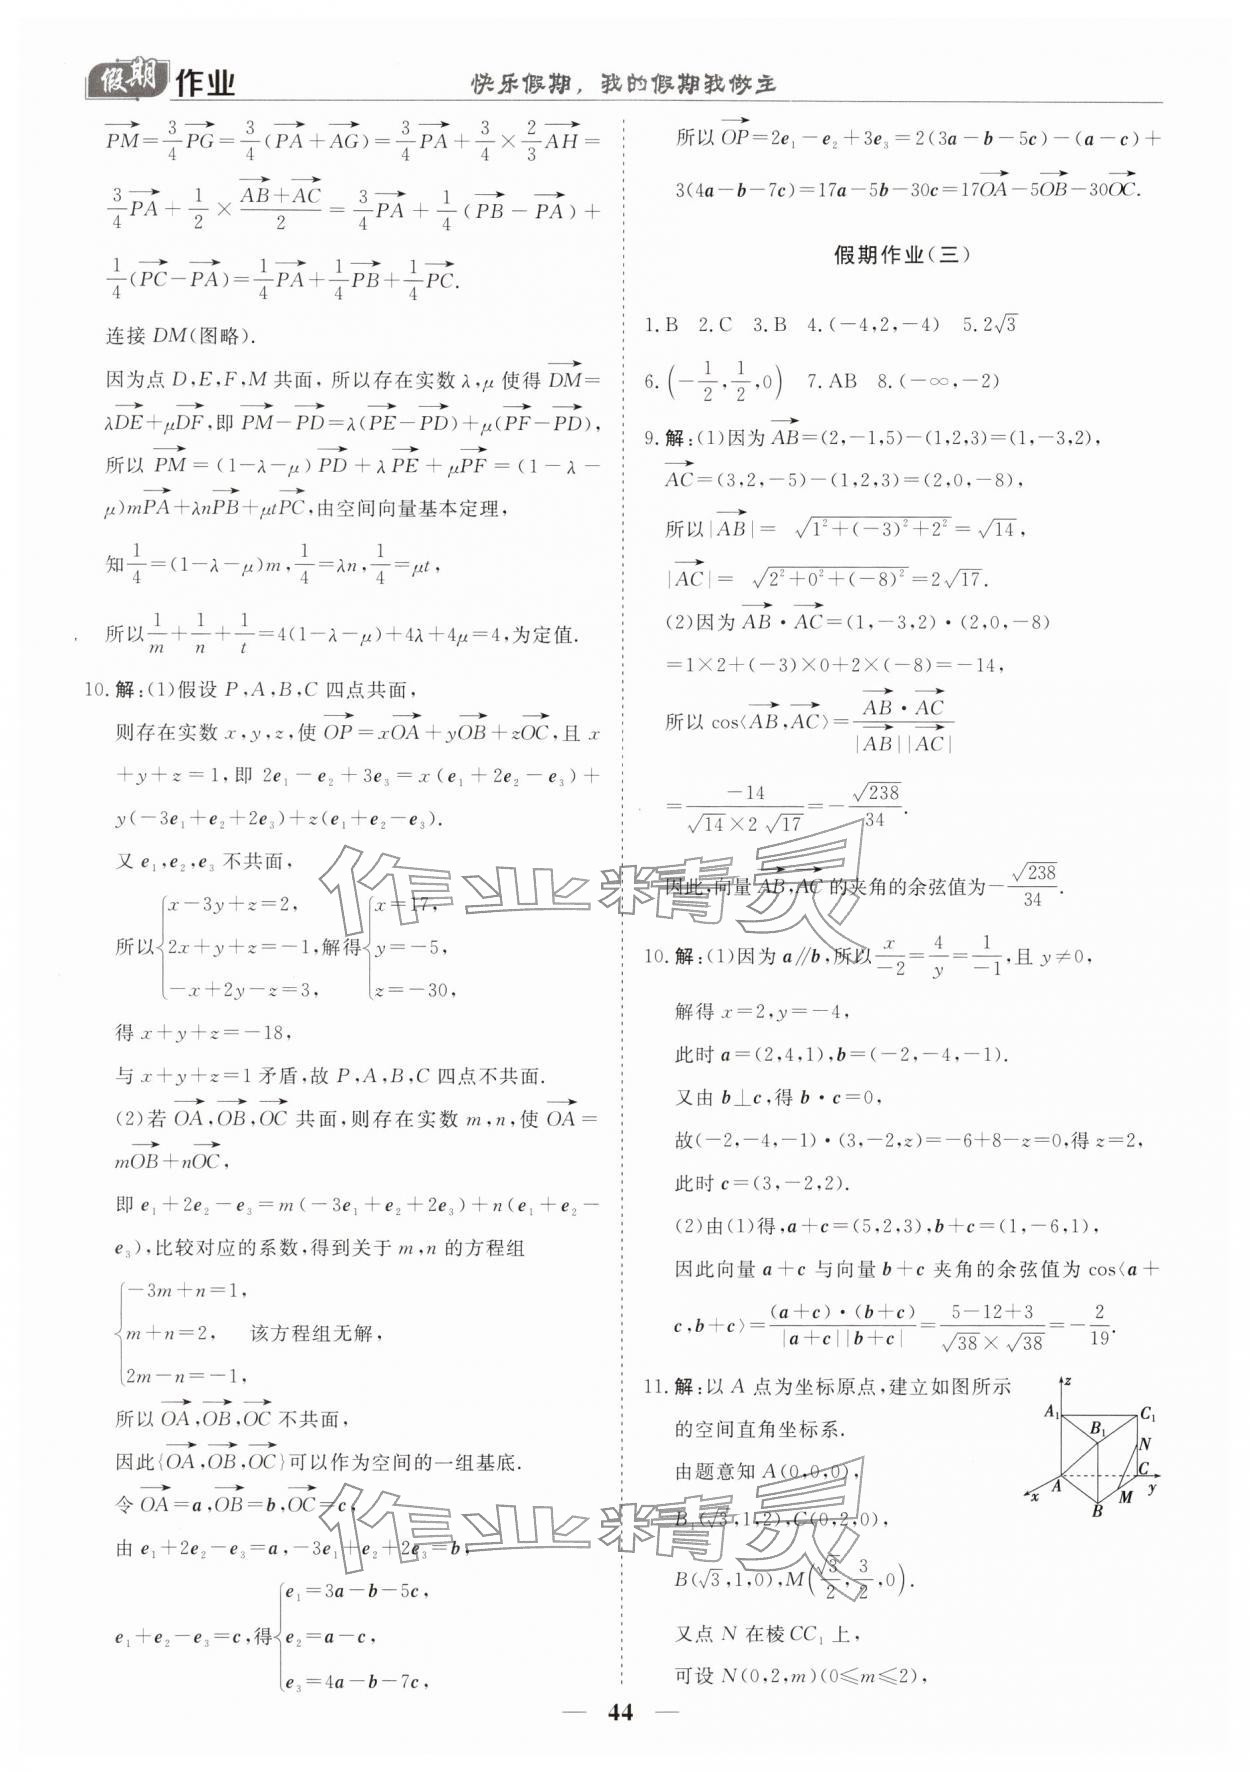 假期 作业
快乐假期，我的假期我做主
$\overrightarrow{PM}=\frac{3}{4}\overrightarrow{PG}=\frac{3}{4}(\overrightarrow{PA}+\overrightarrow{AG})=\frac{3}{4}\overrightarrow{PA}+\frac{3}{4}×\frac{2}{3}\overrightarrow{AH}=$
$\frac{3}{4}\overrightarrow{PA}+\frac{1}{2}×\frac{\overrightarrow{AB}+\overrightarrow{AC}}{2}=\frac{3}{4}\overrightarrow{PA}+\frac{1}{4}(\overrightarrow{PB}-\overrightarrow{PA})+$
$\frac{1}{4}(\overrightarrow{PC}-\overrightarrow{PA})=\frac{1}{4}\overrightarrow{PA}+\frac{1}{4}\overrightarrow{PB}+\frac{1}{4}\overrightarrow{PC}.$
连接 DM(图略).
因为点 D,E,F,M 共面，所以存在实数 λ,μ 使得 $\overrightarrow{DM}=$
$λ\overrightarrow{DE}+μ\overrightarrow{DF}$,即 $\overrightarrow{PM}-\overrightarrow{PD}=λ(\overrightarrow{PE}-\overrightarrow{PD})+μ(\overrightarrow{PF}-\overrightarrow{PD})$,
所以 $\overrightarrow{PM}=(1-λ-μ)\overrightarrow{PD}+λ\overrightarrow{PE}+μ\overrightarrow{PF}=(1-λ-$
$μ)m\overrightarrow{PA}+λn\overrightarrow{PB}+μt\overrightarrow{PC}$,由空间向量基本定理,
知 $\frac{1}{4}=(1-λ-μ)m,\frac{1}{4}=λn,\frac{1}{4}=μt$,
所以 $\frac{1}{m}+\frac{1}{n}+\frac{1}{t}=4(1-λ-μ)+4λ+4μ=4$,为定值.
10. 解:(1)假设 P,A,B,C 四点共面,
则存在实数 x,y,z,使 $\overrightarrow{OP}=x\overrightarrow{OA}+y\overrightarrow{OB}+z\overrightarrow{OC}$,且 x
+y+z=1,即 $2e_1-e_2+3e_3=x(e_1+2e_2-e_3)+$
$y(-3e_1+e_2+2e_3)+z(e_1+e_2-e_3).$
又 $e_1,e_2,e_3$ 不共面,
所以 $\begin{cases}x-3y+z=2,\\2x+y+z=-1,\\-x+2y-z=3,\end{cases}$ 解得 $\begin{cases}x=17,\\y=-5,\\z=-30,\end{cases}$
得 x+y+z=-18,
与 x+y+z=1 矛盾,故 P,A,B,C 四点不共面.
(2)若 $\overrightarrow{OA},\overrightarrow{OB},\overrightarrow{OC}$ 共面,则存在实数 m,n,使 $\overrightarrow{OA}=$
$m\overrightarrow{OB}+n\overrightarrow{OC}$,
即 $e_1+2e_2-e_3=m(-3e_1+e_2+2e_3)+n(e_1+e_2-$
$e_3)$,比较对应的系数,得到关于 m,n 的方程组
$\begin{cases}-3m+n=1,\\m+n=2,\\2m-n=-1,\end{cases}$ 该方程组无解,
所以 $\overrightarrow{OA},\overrightarrow{OB},\overrightarrow{OC}$ 不共面,
因此{$\overrightarrow{OA},\overrightarrow{OB},\overrightarrow{OC}$}可以作为空间的一组基底.
令 $\overrightarrow{OA}=a,\overrightarrow{OB}=b,\overrightarrow{OC}=c$,
由 $e_1+2e_2-e_3=a,-3e_1+e_2+2e_3=b$,
$e_1+e_2-e_3=c$,得 $\begin{cases}e_1=3a-b-5c,\\e_2=a-c,\\e_3=4a-b-7c,\end{cases}$
所以 $\overrightarrow{OP}=2e_1-e_2+3e_3=2(3a-b-5c)-(a-c)+$
$3(4a-b-7c)=17a-5b-30c=17\overrightarrow{OA}-5\overrightarrow{OB}-30\overrightarrow{OC}.$
假期作业(三)
1. B 2. C 3. B 4. (-4,2,-4) 5. $2\sqrt{3}$
6. $\left(-\frac{1}{2},\frac{1}{2},0\right)$ 7. AB 8. (-∞,-2)
9. 解:(1)因为 $\overrightarrow{AB}=(2,-1,5)-(1,2,3)=(1,-3,2)$,
$\overrightarrow{AC}=(3,2,-5)-(1,2,3)=(2,0,-8)$,
所以 $|\overrightarrow{AB}|=\sqrt{1^2+(-3)^2+2^2}=\sqrt{14}$,
$|\overrightarrow{AC}|=\sqrt{2^2+0^2+(-8)^2}=2\sqrt{17}.$
(2)因为 $\overrightarrow{AB}·\overrightarrow{AC}=(1,-3,2)·(2,0,-8)$
=1×2+(-3)×0+2×(-8)=-14,
所以 $\cos⟨\overrightarrow{AB},\overrightarrow{AC}⟩=\frac{\overrightarrow{AB}·\overrightarrow{AC}}{|\overrightarrow{AB}||\overrightarrow{AC}|}$
$=\frac{-14}{\sqrt{14}×2\sqrt{17}}=-\frac{\sqrt{238}}{34}.$
因此,向量 $\overrightarrow{AB},\overrightarrow{AC}$ 的夹角的余弦值为 $-\frac{\sqrt{238}}{34}.$
10. 解:(1)因为 a∥b,所以 $\frac{x}{-2}=\frac{4}{y}=\frac{1}{-1}$,且 y≠0,
解得 x=2,y=-4,
此时 a=(2,4,1),b=(-2,-4,-1).
又由 b⊥c,得 b·c=0,
故(-2,-4,-1)·(3,-2,z)=-6+8-z=0,得 z=2,
此时 c=(3,-2,2).
(2)由(1)得,a+c=(5,2,3),b+c=(1,-6,1),
因此向量 a+c 与向量 b+c 夹角的余弦值为 cos⟨a+
$c,b+c⟩=\frac{(a+c)·(b+c)}{|a+c||b+c|}=\frac{5-12+3}{\sqrt{38}×\sqrt{38}}=-\frac{2}{19}.$
11. 解:以 A 点为坐标原点,建立如图所示
的空间直角坐标系.
由题意知 A(0,0,0),
$B_1(\sqrt{3},1,2),C(0,2,0)$,
$B(\sqrt{3},1,0),M\left(\frac{\sqrt{3}}{2},\frac{3}{2},0\right).$
又点 N 在棱 $CC_1$ 上,
可设 N(0,2,m)(0≤m≤2),
z
A₁ C₁
B₁
N
A C
x M y
B
作业精灵
作业精灵
— 44 —